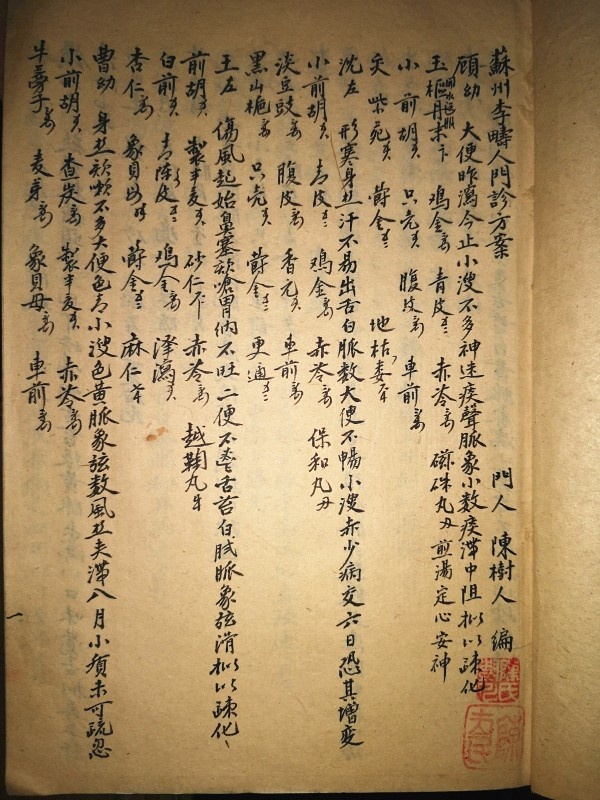 蘇州李疇人門診方案
門人 陳樹人 編
顧幼 大便昨瀉今止小溲不多神迷痰聲脈象小數痰滯中阻擬以疎化
玉樞丹末 開水送服 雞金 青皮 赤苓 磁硃丸 煎湯定心安神
小前胡 只壳 腹皮 車前
紫苑 蔚金 地枯蔞
沈左 形寒身热汗不易出舌白脈数大便不暢小溲赤少病交六日恐其增变
小前胡 青皮 雞金 赤苓 保和丸
淡豆豉 腹皮 香元 車前
黑山栀 只壳 蔚金 更通
王左 傷風起始鼻塞欬嗆胃納不旺二便不舌苔白膩脈象弦滑擬以疎化
前胡 製半夏 砂仁 赤苓 越鞠丸
白前 青陳皮 雞金 澤瀉
杏仁 象貝 蔚金 麻仁
曹幼 身热欬嗽不多大便色青小溲色黄脈象弦数風热夹滯八月小孩未可疏忽
小前胡 查炭 製半夏 赤苓
牛蒡子 麦芽 象貝母 車前
一